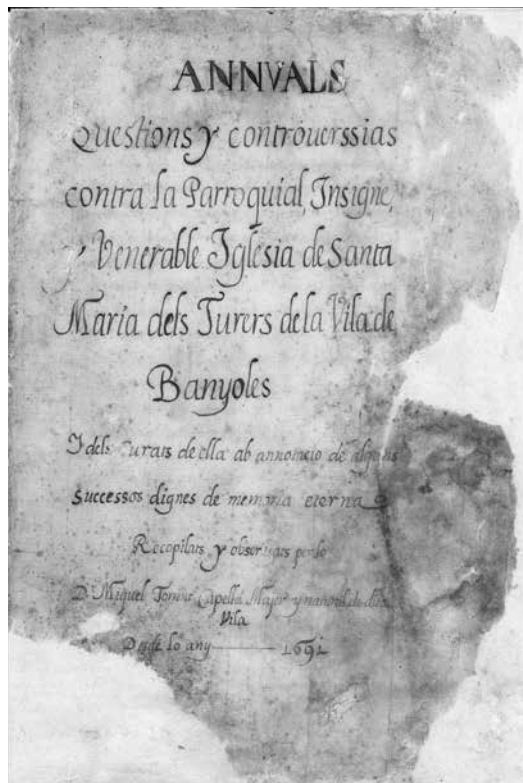 ANNVALS
Questions y controuerssias
contra la Parroquial, Insigne,
y Venerable Iglesia de Santa
Maria dels Turers de la Vila de
Banyoles
Y dels Curats de ella ab annotacio de alguns
successos dignes de memoria eterna
Recopilats y obseruats per lo
D. Miquel Capella Major y natural de dita
Vila
Desde lo any 1691